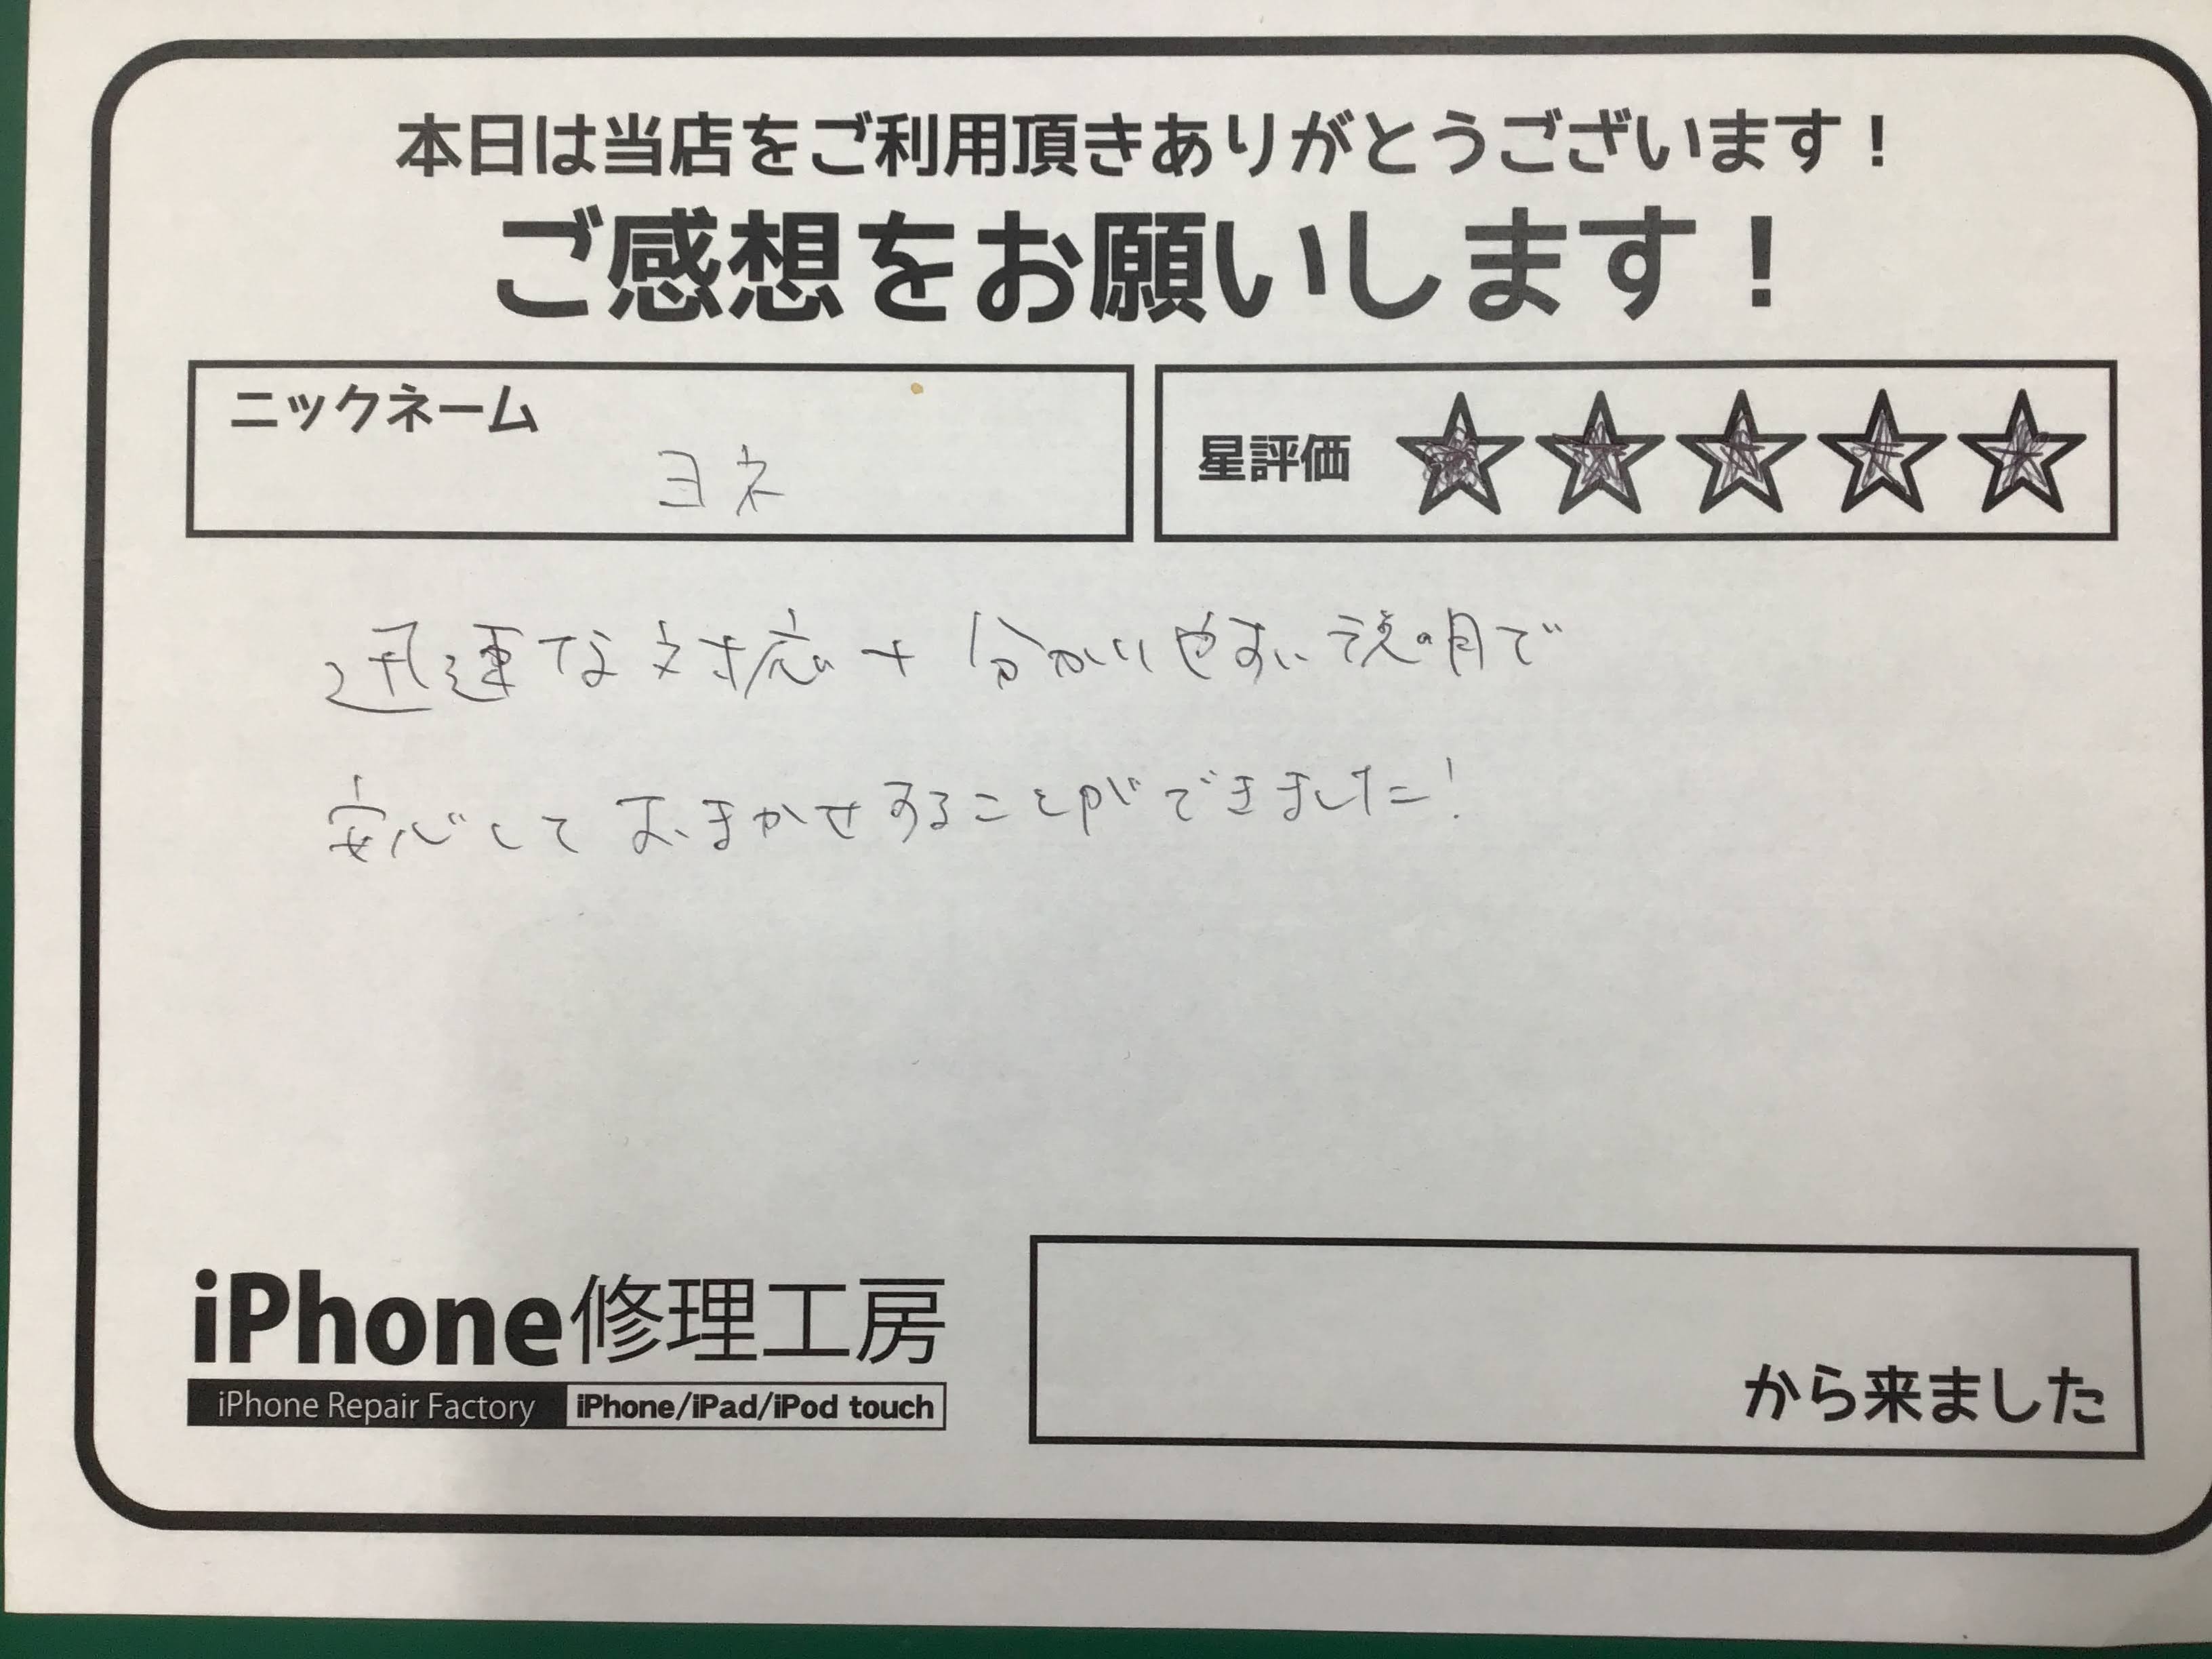 本日は当店をご利用頂きありがとうございます！
ご感想をお願いします！
ニックネーム
ヨネ
星評価 ★★★★★
迅速な対応+分かりやすい説明で
安心しておまかせすることができました!
iPhone修理工房
iPhone Repair Factory iPhone/iPad/iPod touch
から来ました